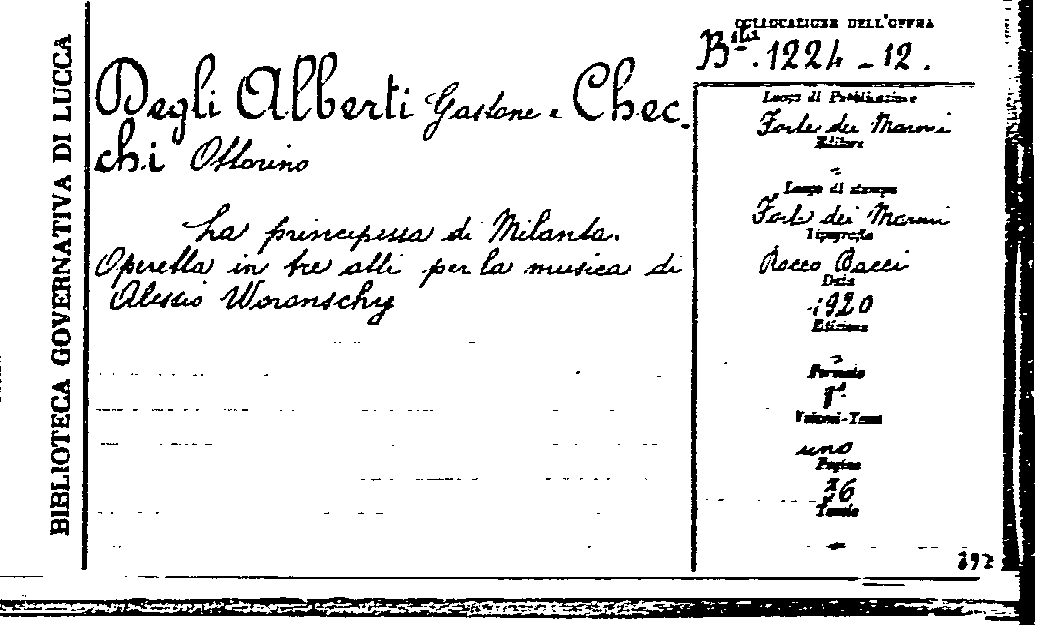 BIBLIOTECA GOVERNATIVA DI LUCCA
Degli Alberti Gastone e Chec-
chi Ottorino
La principessa di Milanta.
Operetta in tre atti per la musica di
Alessio Woranschy
COLLOCAZIONE DELL'OPERA
B.ta 1224 - 12.
Luogo di Pubblicazione
Forte dei Marmi
Editore
Luogo di stampa
Forte dei Marmi
Tipografia
Rocco Bacci
Data
1920
Edizione
Formato
Volumi-Tomi
uno
Pagine
36
Tavole